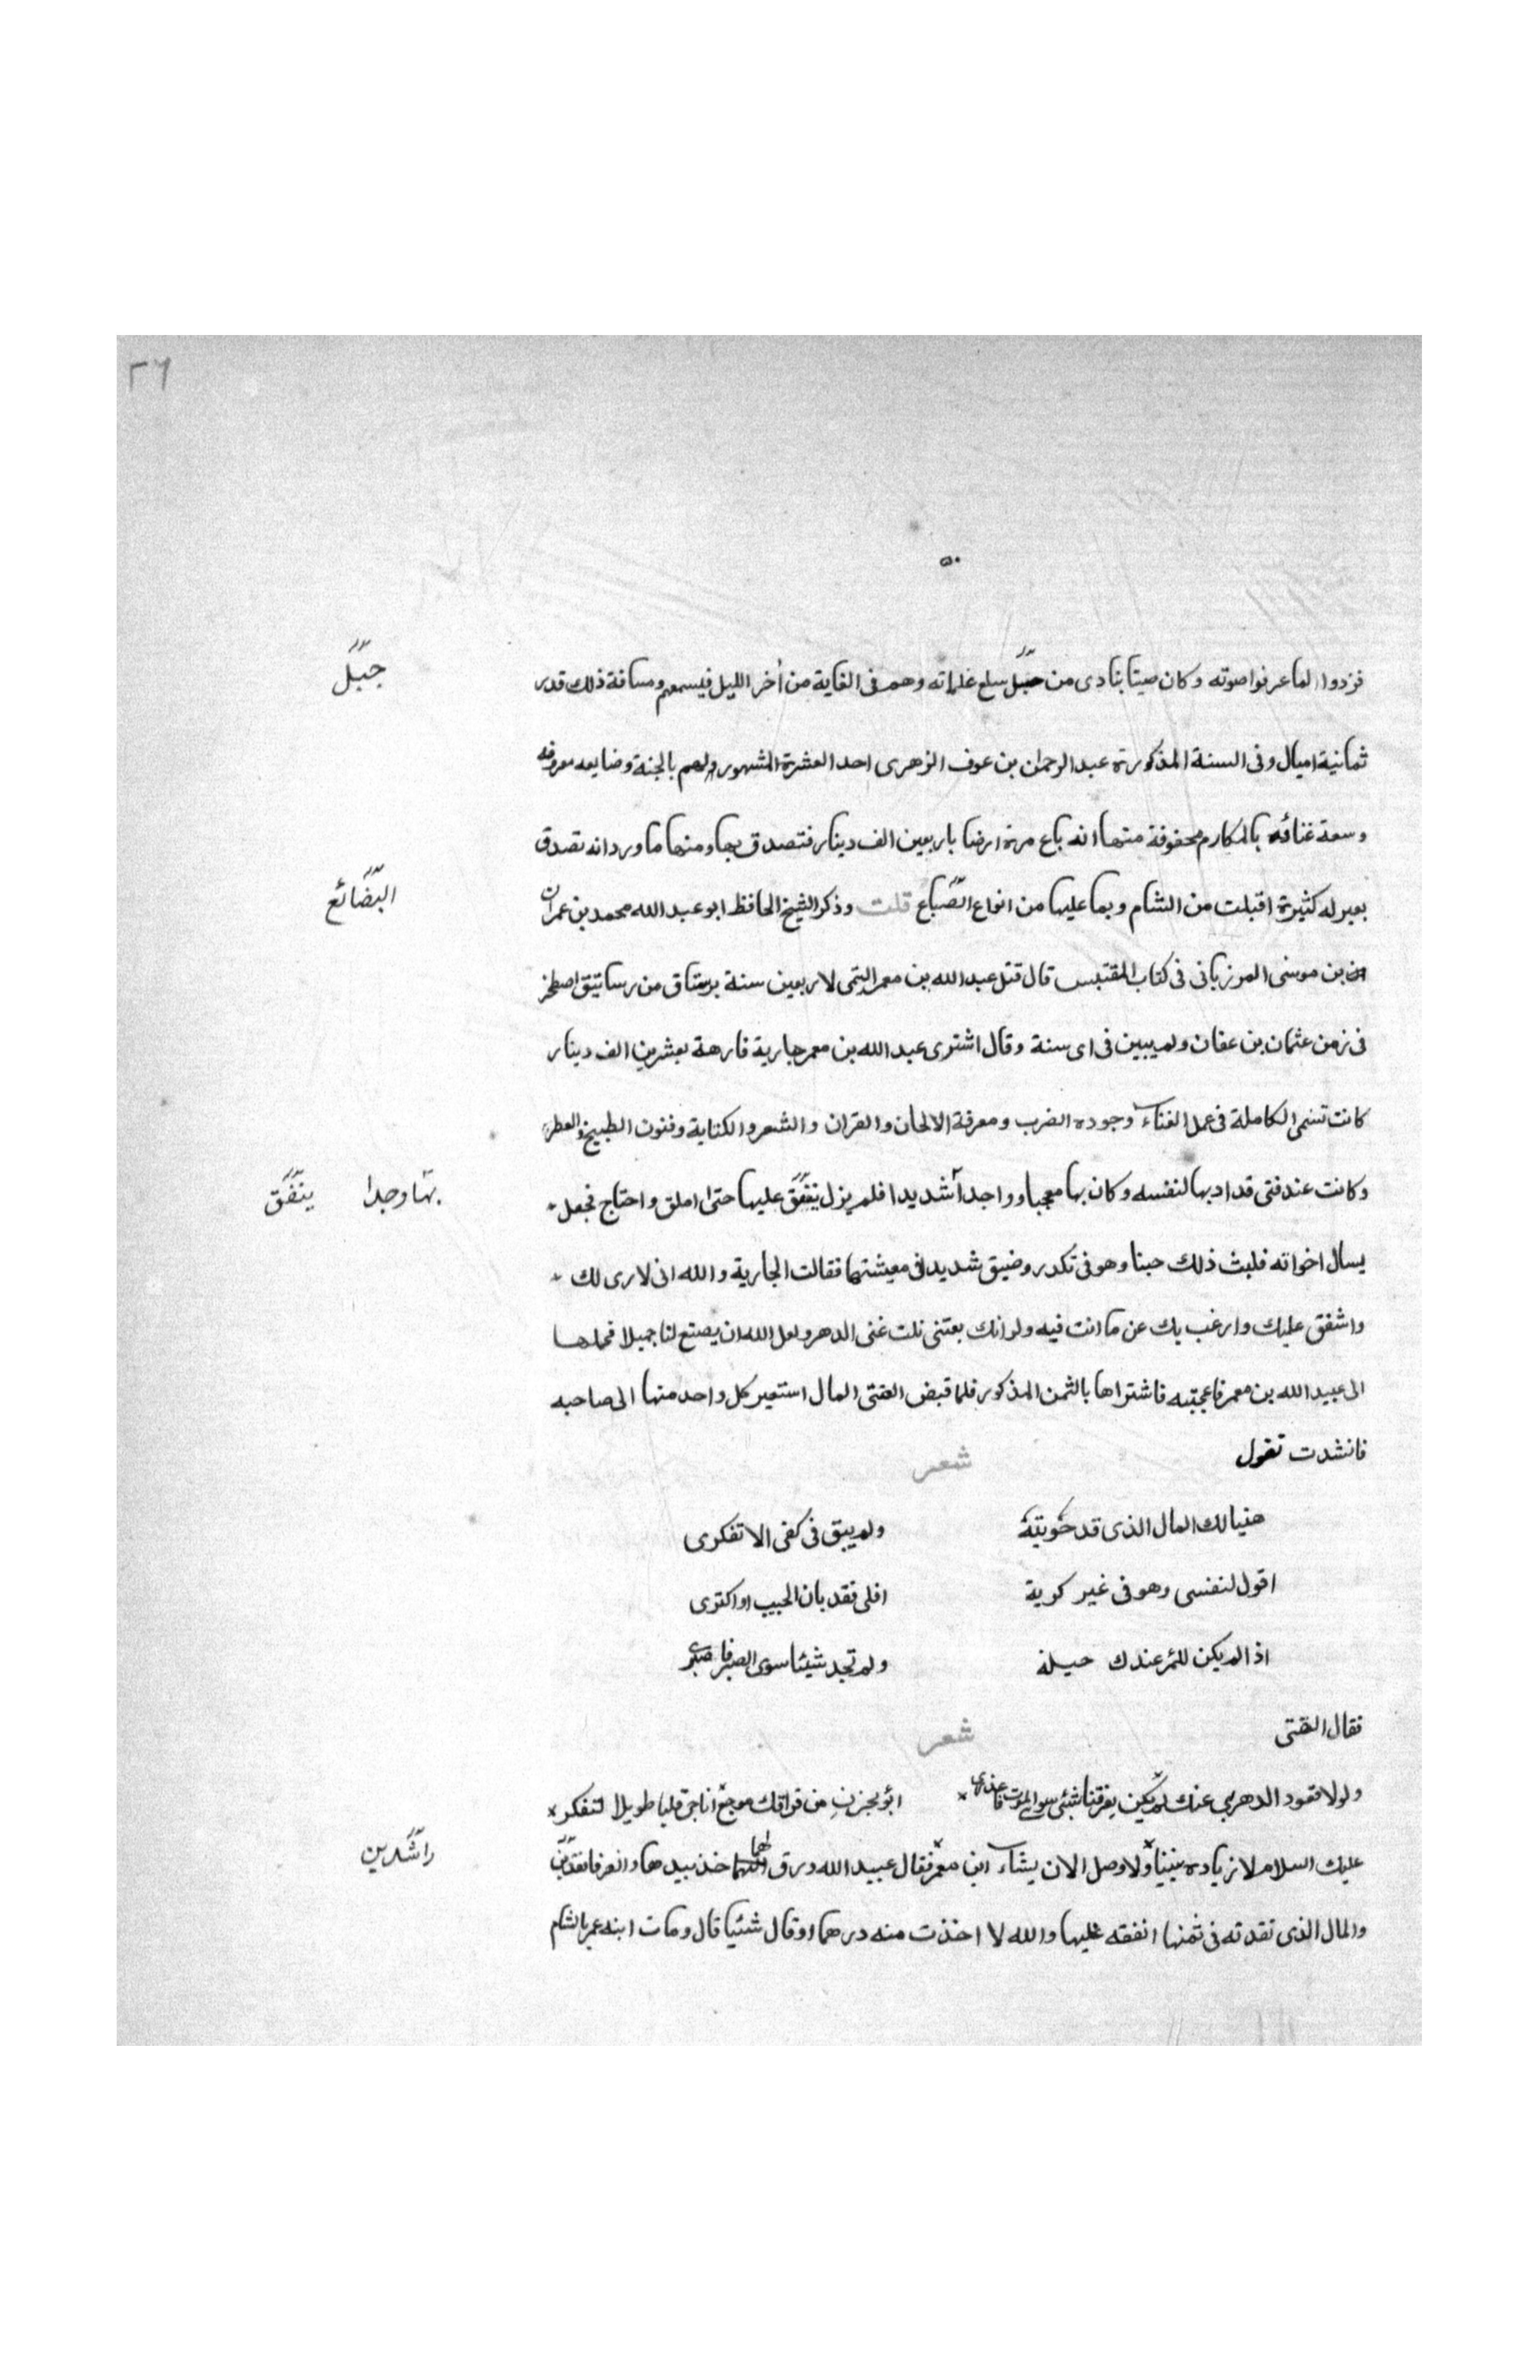 ٢٦
٥٠
فزدوا لما عرفوا صوته وكان صيتا ينادى من جبل سلع غلمانه وهم فى الغاية من أخر الليل فيسمعهم ومسافة ذلك قدر
جبل
ثمانية اميال وفى السنة المذكورة عبد الرحمان بن عوف الزهرى احد العشرة المشهور لهم بالجنة وصنايعه معروفه
وسعة غنائه بالمكارم محفوفة منها انه باع مرة ارضا باربعين الف دينار فتصدق بها ومنها ما ورد انه تصدق
بعير له كثيرة اقبلت من الشام وبما عليها من انواع الصباع قلت وذكر الشيخ الحافظ ابو عبد الله محمد بن عمران
البضائع
بن موسى المرزبانى فى كتاب المقتبس قال قتل عبد الله بن معمر التيمى لاربعين سنة برستاق من رساتيق اصطخر
فى زمن عثمان بن عفان ولم يبين فى اى سنة وقال اشترى عبد الله بن معمر جارية فارهة بعشرين الف دينار
كانت تسمى الكاملة فى عمل الغناء وجوده الضرب ومعرفة الالحان والقران والشعر والكتابة وفنون الطبيخ والعطر
وكانت عند فتى قد ادبها لنفسه وكان بها معجبا وواجدا شديدا فلم يزل ينفق عليها حتى املق واحتاج فجعل
بها وجدا ينفق
يسال اخوانه فلبث ذلك حينا وهو فى تكدر وضيق شديد فى معيشتهما فقالت الجارية والله انى لارى لك
واشفق عليك وارغب بك عن ما انت فيه ولو انك بعتنى نلت غنى الدهر ولعل الله ان يصنع لنا جميلا فحملها
الى عبيد الله بن معمر فاعجبته فاشتراها بالثمن المذكور فلما قبض الفتى المال استعبر كل واحد منها الى صاحبه
فانشدت تقول شعر
هنيا لك المال الذى قد حويته ولم يبق فى كفى الا تفكرى
اقول لنفسى وهو فى غير كربة اقلى فقد بان الحبيب او اكثرى
اذا لم يكن للمر عندك حيلة ولم تجد شيئا سوى الصبر فاصبرى
فقال الفتى شعر
ولولا قعود الدهر بى عنك لم يكن يفرقنا شئ سوى الموت فاعذرى ابؤ بحزن من فراقك موجع اناجى قلبا طويلا لتفكر
عليك السلام لا زياده بيننا ولا وصل الا ان يشاء ابن معمر فقال عبيد الله ورق لهما خذ بيدها وانصرفا
راشدين
والمال الذى نقدته فى ثمنها انفقه عليها والله لا اخذت منه درهما او قال شئيا قال ومات ابنه عمر بالشام